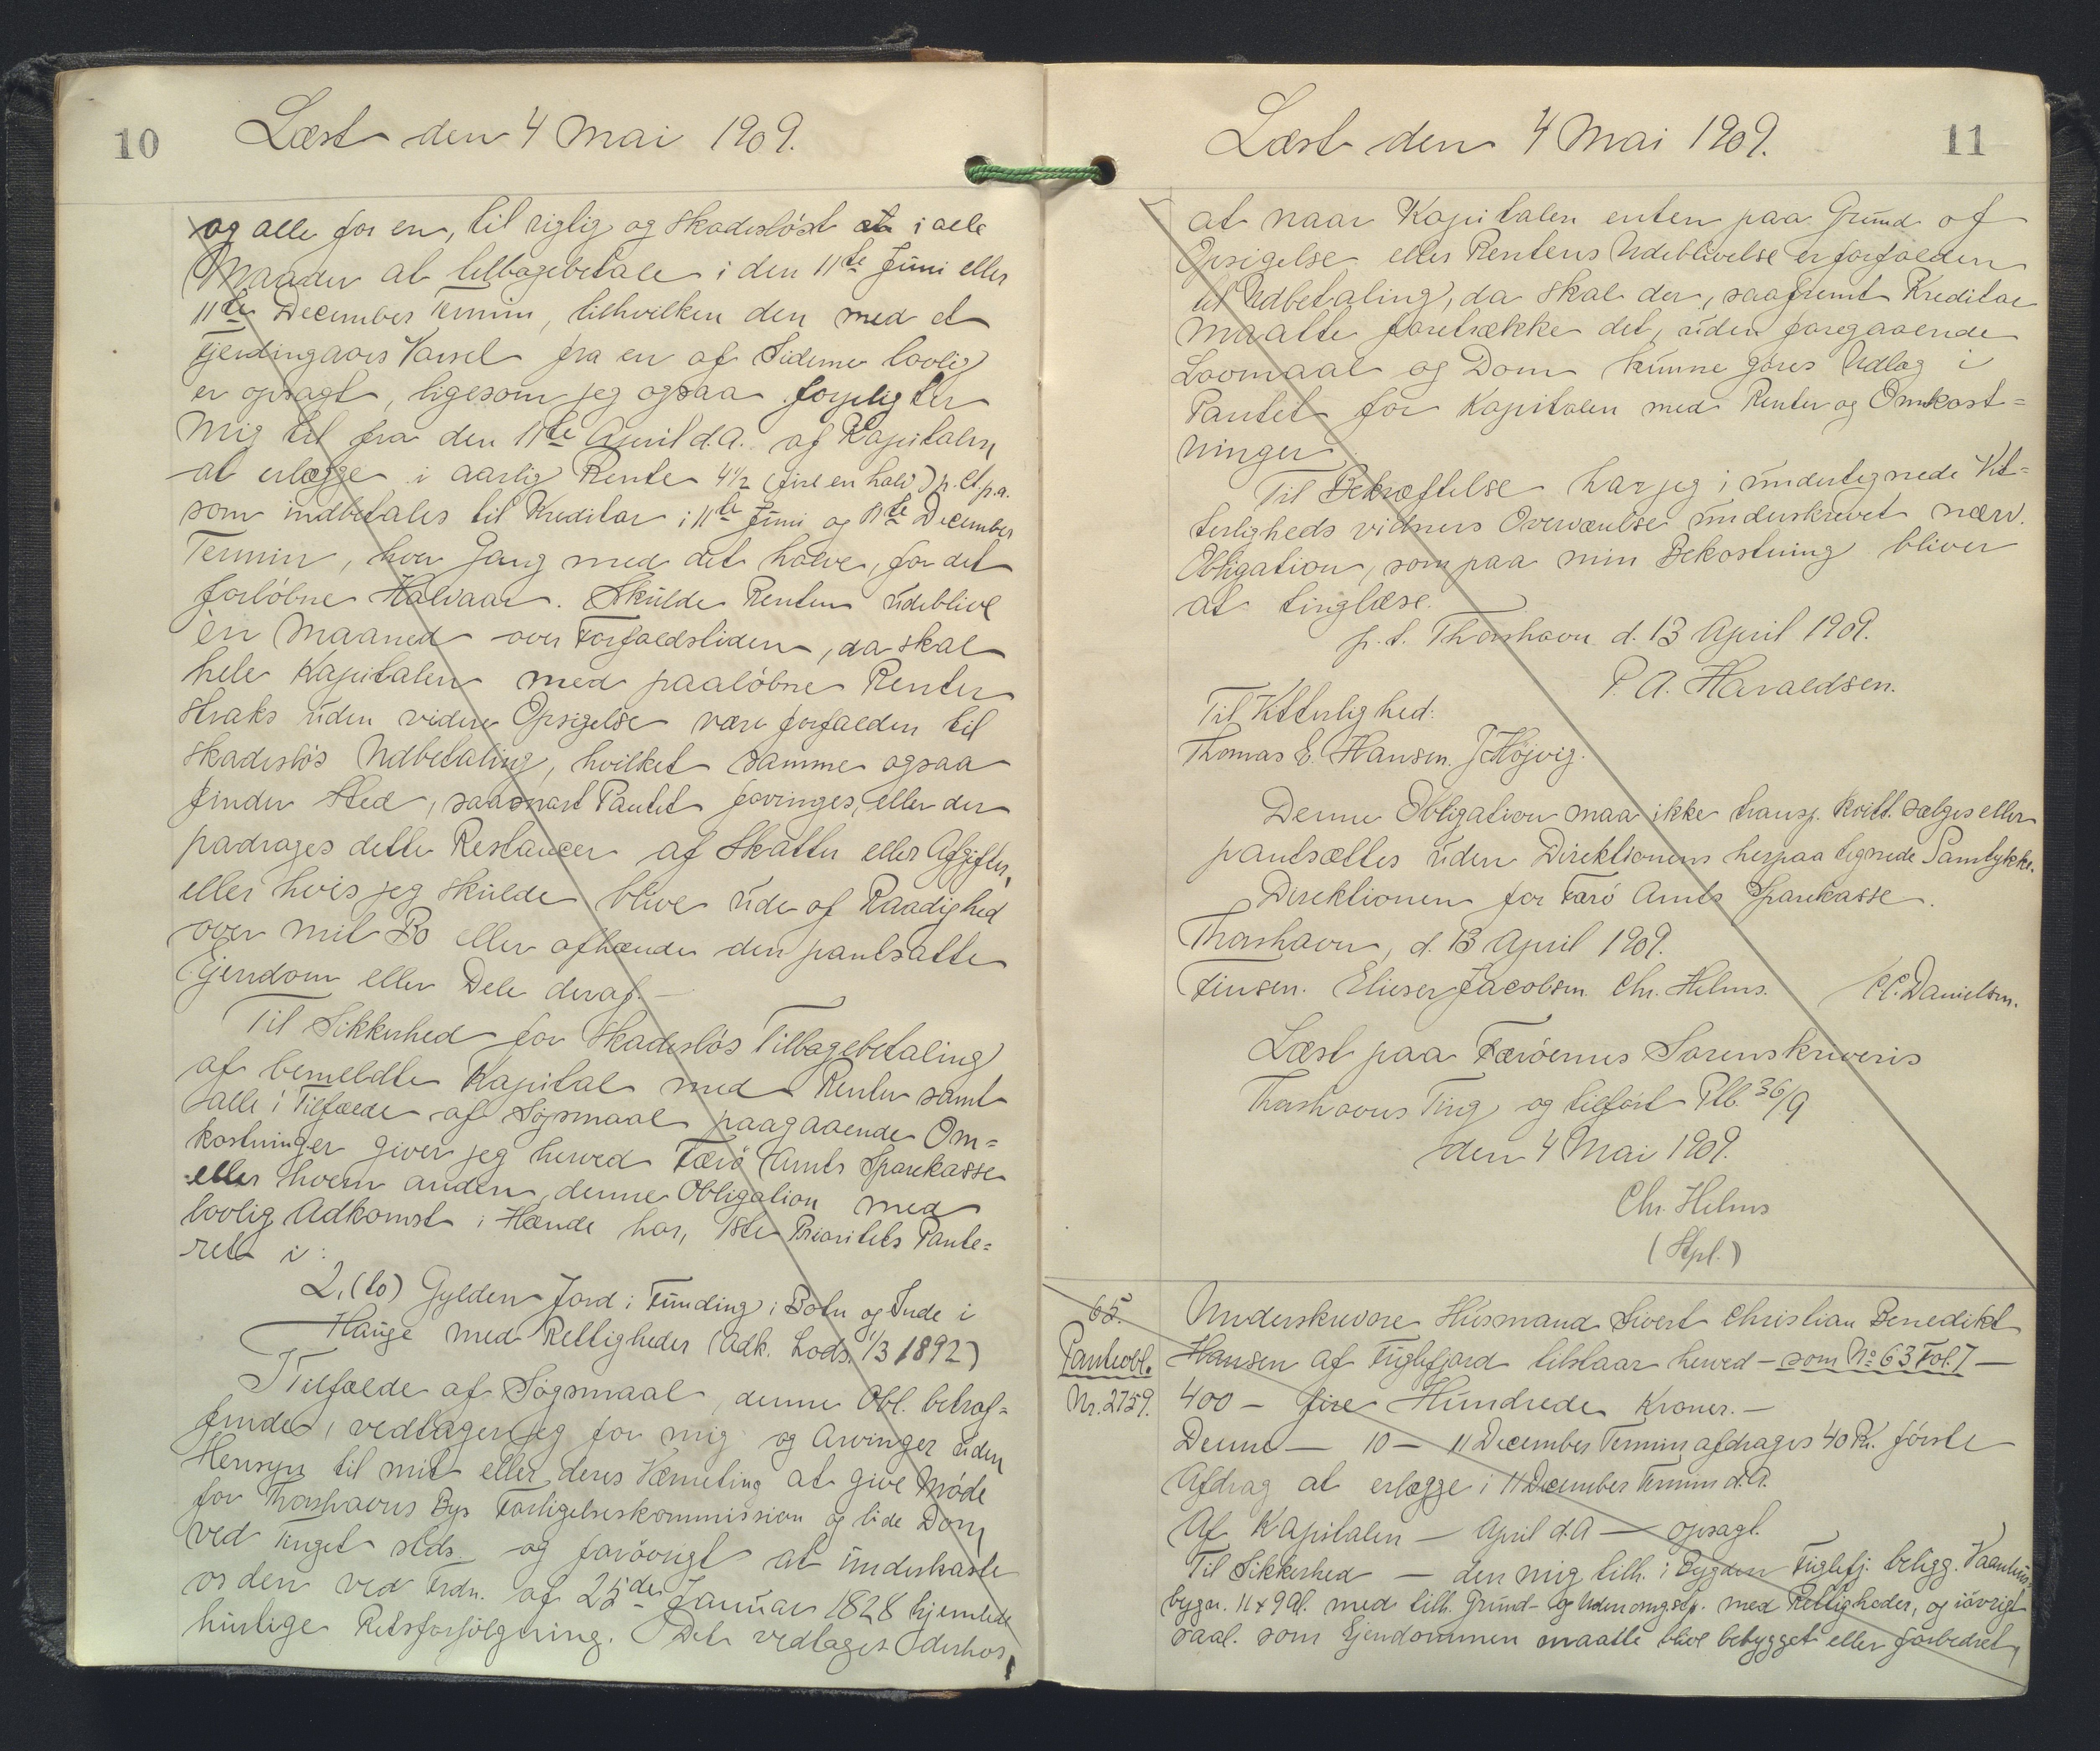 10
Læst den 4 Mai 1909.
og alle for en, til rigtig og skadesløst at i alle
Maader at tilbagebetale i den 11te Juni eller
11te December Termin, tilhvilken den med et
Fjerdingaars Varsel fra en af Siderne lovlig
er opsagt, ligesom jeg ogsaa forpligter
mig til fra den 11te April d.A. af Kapitalen
at erlægge i aarlig Rente 4½ (fire en halv) p. Ct p.a.
som indbetales til Kreditor i 11te Juni og 11te December
Termin, hver Gang med det halve, for det
forløbne Halvaar. Skulde Renten udeblive
en Maaned over Forfaldstiden, da skal
hele Kapitalen med paaløbne Renter
straks uden videre Opsigelse være forfalden til
skadesløs Udbetaling, hvilket samme ogsaa
finder Sted, saasnart Pantet forringes, eller der
padrages dette Restancer af Skatter eller Afgifter,
eller hvis jeg skulde blive ude af Raadighed
over mit Bo eller afhænder den pantsatte
Ejendom eller Dele deraf.—
Til Sikkerhed for skadesløs Tilbagebetaling
af bemeldte Kapital med Renter samt
alle i Tilfælde af Søgsmaal paagaaende Om=
kostninger giver jeg herved Færø Amts Sparekasse
eller hvem anden, denne Obligation med
lovlig Adkomst i Hænde har, 1ste Prioritets Pante=
ret i:
2. (to) Gylden Jord i Funding i Botn og Inde i
Hauge med Rettigheder (Adk. Lods. 1/3 1892)
I Tilfælde af Søgsmaal, denne Obl. betræf=
fende, vedtager jeg for mig og Arvinger uden
Hensyn til mit eller deres Værneting at give Møde
for Thorshavns Bys Forligelseskommission og lide Dom
ved Tinget stds. og forøvrigt at underkaste
os den ved Frdn. af 25de Januar 1828 hjemlede
hurtige Retsforfølgning. Det vedtages derhos,
Læst den 4 Mai 1909.
11
at naar Kapitalen enten paa Grund af
Opsigelse eller Rentens Udeblivelse er forfalden
til Udbetaling, da skal der, saafremt Kreditor
maatte foretrække det, uden foregaaende
Lovmaal og Dom kunne gøres Udlæg i
Pantet for Kapitalen med Renter og Omkost=
ninger.
Til Bekræftelse har jeg i undertegnede Vit=
terligheds vidners Overværelse underskrevet nærv.
Obligation, som paa min Bekostning bliver
at tinglæse.
p.t. Thorshavn d. 13 April 1909.
P. A. Haraldsen.
Til Vitterlighed:
Thomas E. Hansen. J Højvig.
Denne Obligation maa ikke transp. kvitt. sælges eller
pantsættes uden Direktionens herpaa tegnede Samtykke.
Direktionen for Færø Amts Sparekasse.
Thorshavn, d. 13 April 1909.
Finsen. Elieser Jacobsen. Chr. Helms. C.C. Danielsen.
Læst paa Færøernes Sorenskriveris
Thorshavns Ting og tilført Ptb. 36/9
den 4 Mai 1909.
Chr. Helms
(Stpl.)
65.
Panteobl.
Nr. 2759.
Underskrevne Husmand Sivert Christian Benedikt
Hansen af Fuglefjord tilstaar herved — som No 63 Fol. 7 —
400 — fire Hundrede Kroner.—
Denne — 10 — 11 December Termin afdrages 40 Kr. første
Afdrag at erlægge i 11 December Termin d.A.
Af Kapitalen — April d.A — opsagt.
Til Sikkerhed — den mig tilh. i Bygden Fuglefj. beligg. Vaanhus
bygn. 11 x 9 Al. med tilh. Grund- og Udenomgsp. med Rettigheder, og iøvrigt
saal. som Ejendommen maatte blive bebygget eller forbedret,